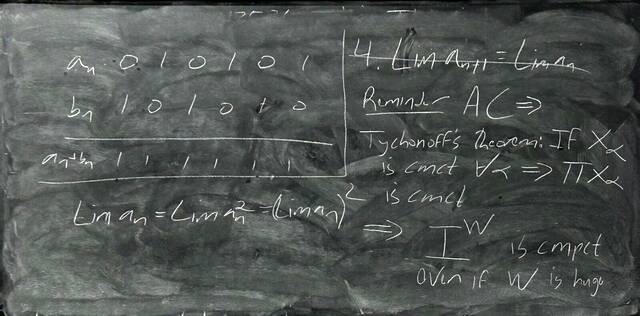 aₙ 0 1 0 1 0 1
bₙ 1 0 1 0 1 0
aₙ+bₙ 1 1 1 1 1 1
Lim aₙ = Lim aₙ² = (Lim aₙ)²
4. Lim aₙ₊₁ = Lim aₙ
Reminder AC ⇒
Tychonoff's Theorem: If Xα
is cmct ∀α ⇒ ΠXα
is cmct
⇒ I^W is cmpct
even if W is huge